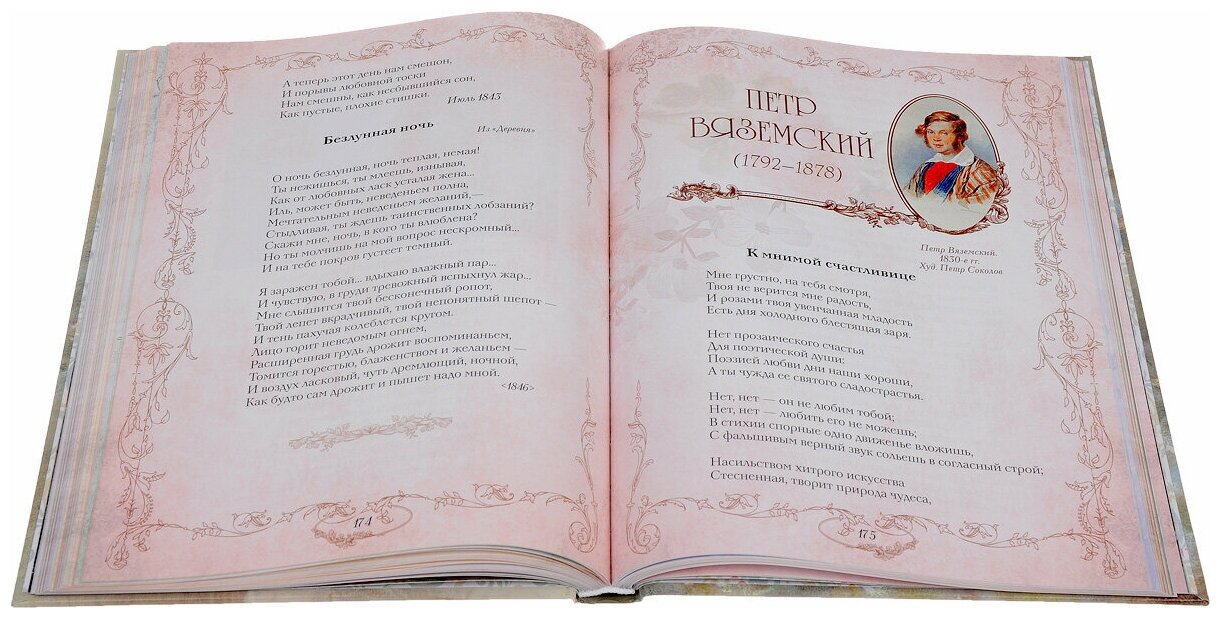 А теперь этот день нам смешон,
И порывы любовной тоски
Нам смешны, как несбывшийся сон,
Как пустые, плохие стишки.
Июль 1843
Безлунная ночь
Из «Деревня»
О ночь безлунная, ночь теплая, немая!
Ты нежишься, ты млеешь, изнывая,
Как от любовных ласк усталая жена...
Иль, может быть, неведеньем полна,
Мечтательным неведеньем желаний,—
Стыдливая, ты ждешь таинственных лобзаний?
Скажи мне, ночь, в кого ты влюблена?
Но ты молчишь на мой вопрос нескромный...
И на тебе покров густеет темный.
Я заражен тобой... вдыхаю влажный пар...
И чувствую, в груди тревожный вспыхнул жар...
Мне слышится твой бесконечный ропот,
Твой лепет вкрадчивый, твой непонятный шепот —
И тень пахучая колеблется кругом.
Лицо горит неведомым огнем,
Расширенная грудь дрожит воспоминаньем,
Томится горестью, блаженством и желаньем —
И воздух ласковый, чуть дремлющий, ночной,
Как будто сам дрожит и пышет надо мной.
<1846>
174
ПЕТР
ВЯЗЕМСКИЙ
(1792–1878)
Петр Вяземский.
1830-е гг.
Худ. Петр Соколов
К мнимой счастливице
Мне грустно, на тебя смотря,
Твоя не верится мне радость,
И розами твоя увенчанная младость
Есть дня холодного блестящая заря.
Нет прозаического счастья
Для поэтической души:
Поэзией любви дни наши хороши,
А ты чужда ее святого сладострастья.
Нет, нет — он не любим тобой;
Нет, нет — любить его не можешь;
В стихии спорные одно движенье вложишь,
С фальшивым верный звук сольешь в согласный строй;
Насильством хитрого искусства
Стесненная, творит природа чудеса,
175